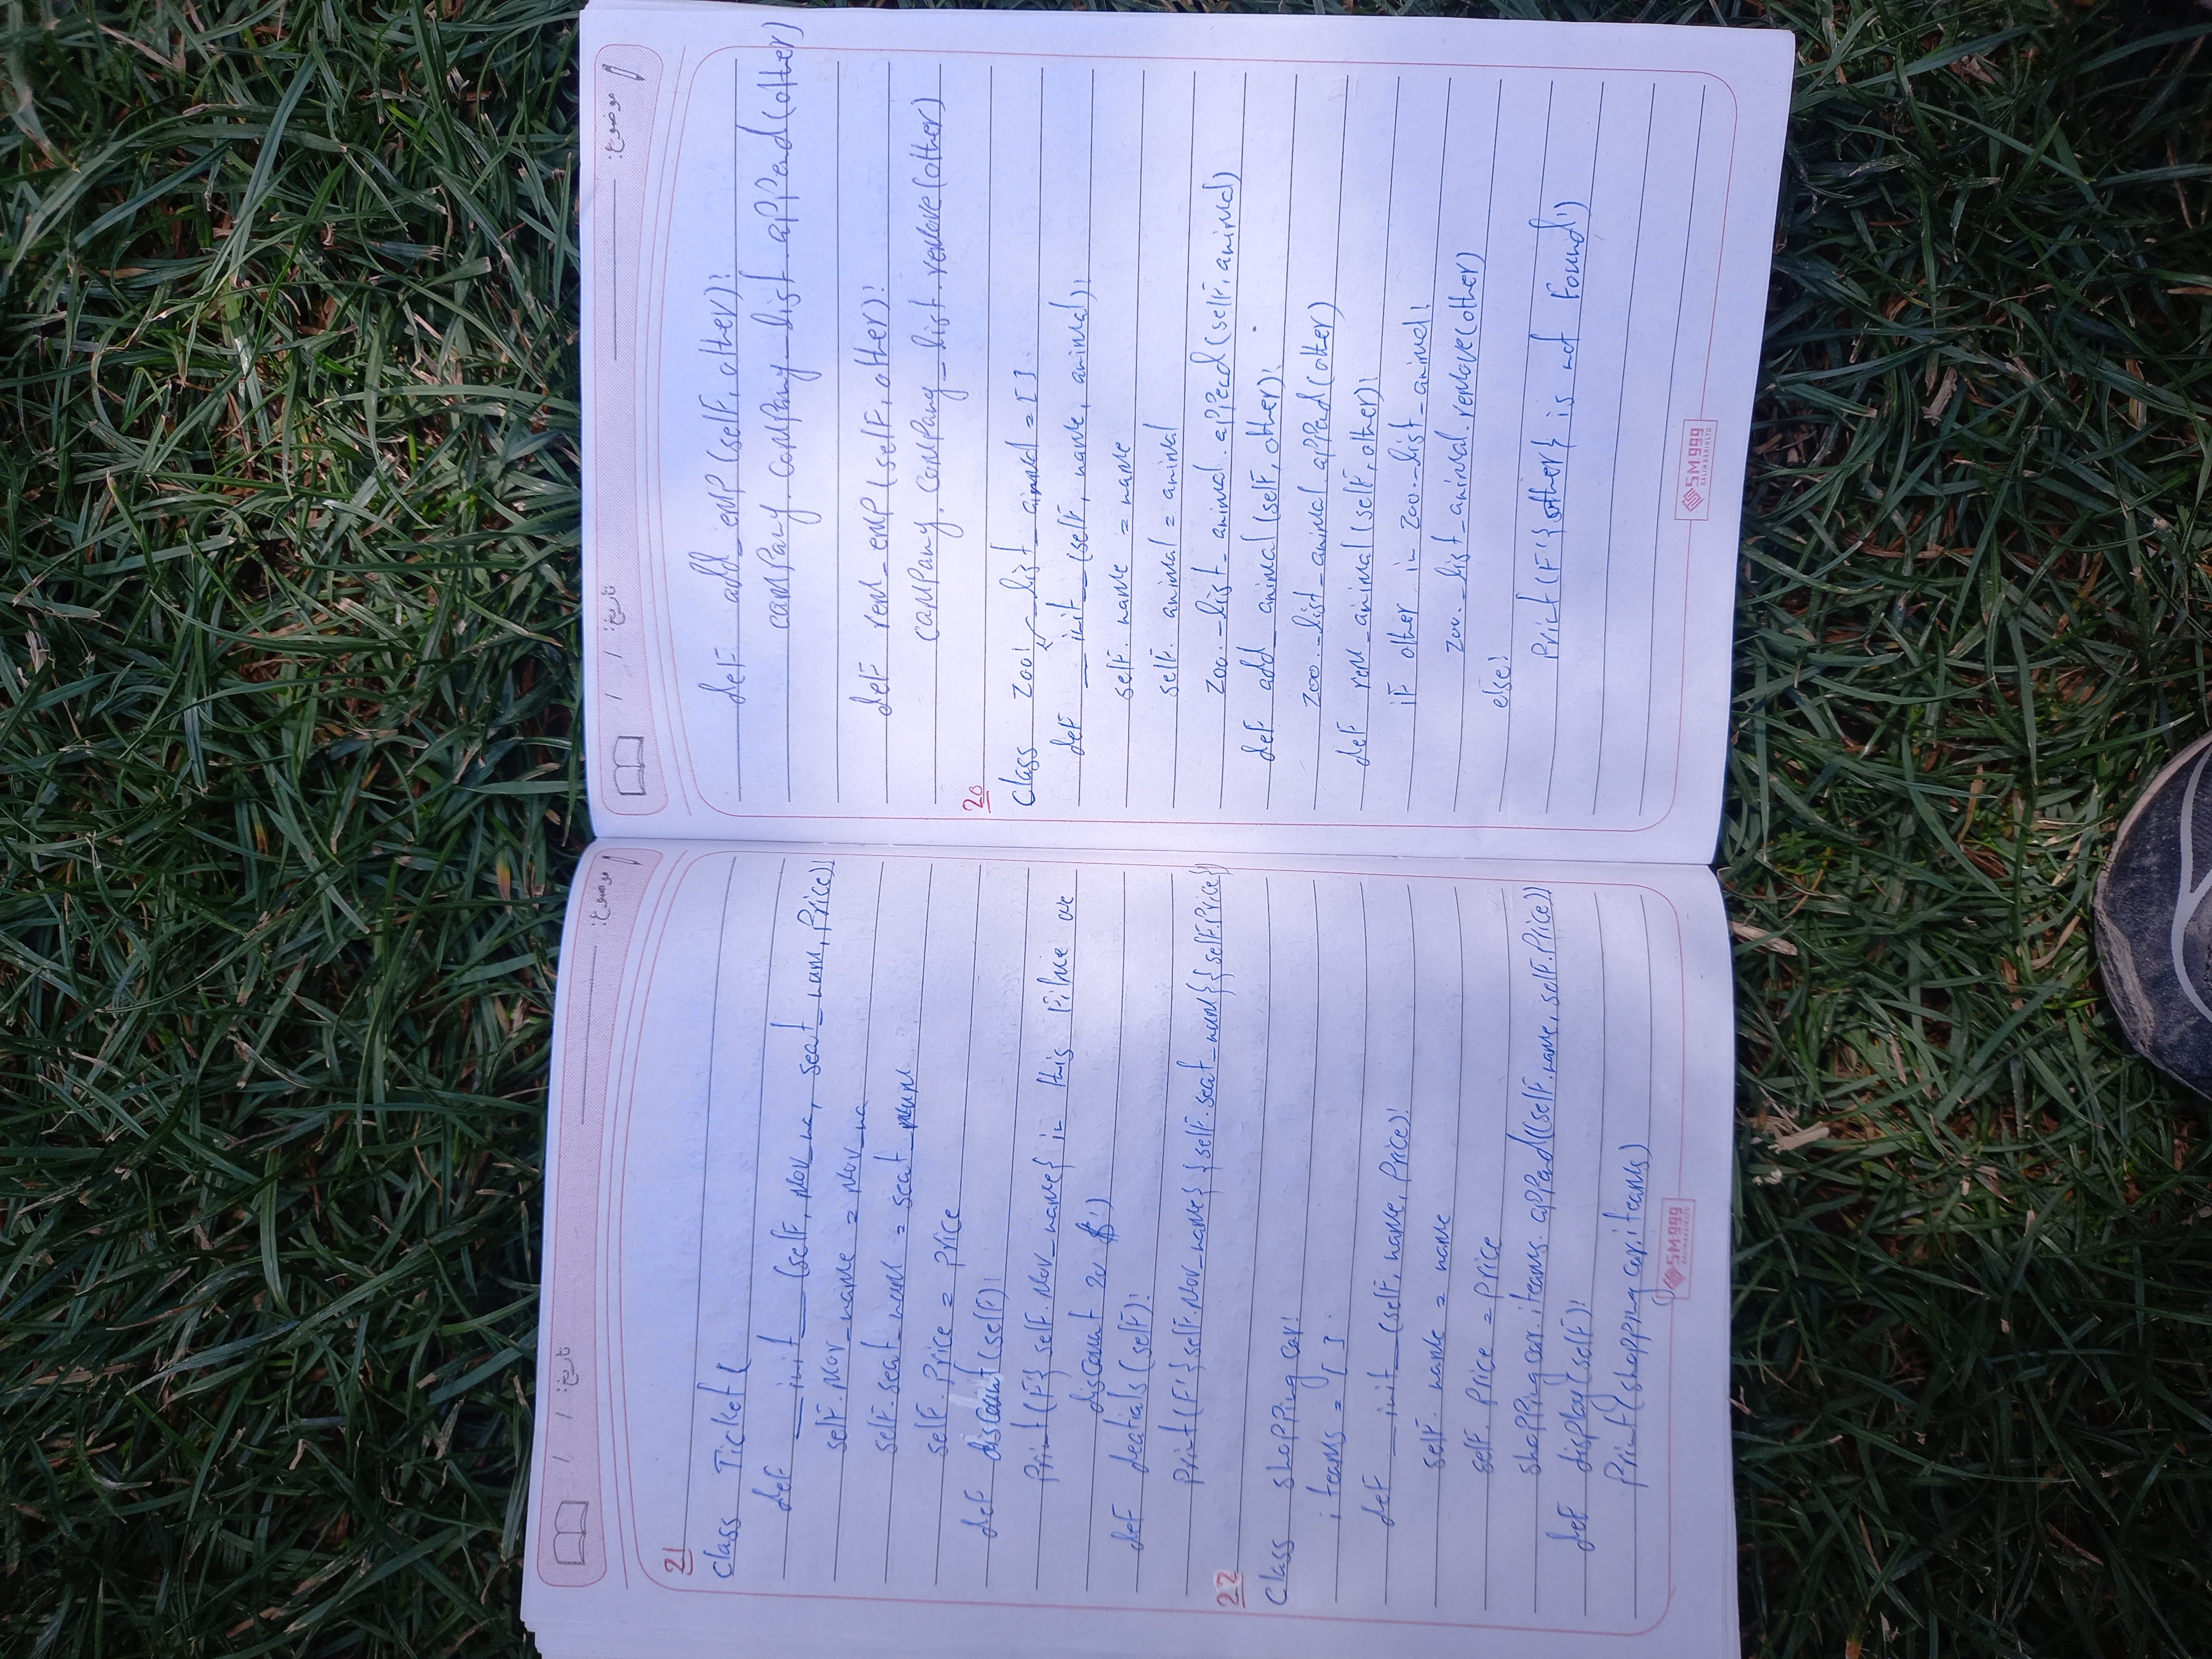 تاريخ: / /
موضوع:
21
class Ticket(
def __init__(self, Mov_na, seat_num, Price):
self.Mov_name = Mov_na
self.seat_num = seat_num
self.Price = Price
def discount(self):
Print(F'} self.Mov_name} in this Filme we
discount 20 $')
def deatials(self):
Print(F'}self.Mov_name} {self.seat_num}{self.Price}
22
class shopping car:
iteams = []
def __init__(self, name, Price):
self. name = name
self. Price = Price
shopping car.iteams.append((self.name, self.Price))
def display(self):
Print(shopping car.iteams)
SM999
SALIM SABIR LTD
تاريخ: / /
موضوع:
def add_emp(self, other):
company.company_list.append(other)
def rem_emp(self, other):
company.company_list.remove(other)
20
class Zoo: _list_animal = []
def __init__(self, name, animal):
self. name = name
self. animal = animal
Zoo._list_animal.append(self.animal)
def add_animal(self, other):
Zoo._list_animal.append(other)
def rem_animal(self, other):
if other in Zoo._list_animal:
Zoo._list_animal.remove(other)
else:
Print(F'}other} is not Found')
SM999
SALIM SABIR LTD